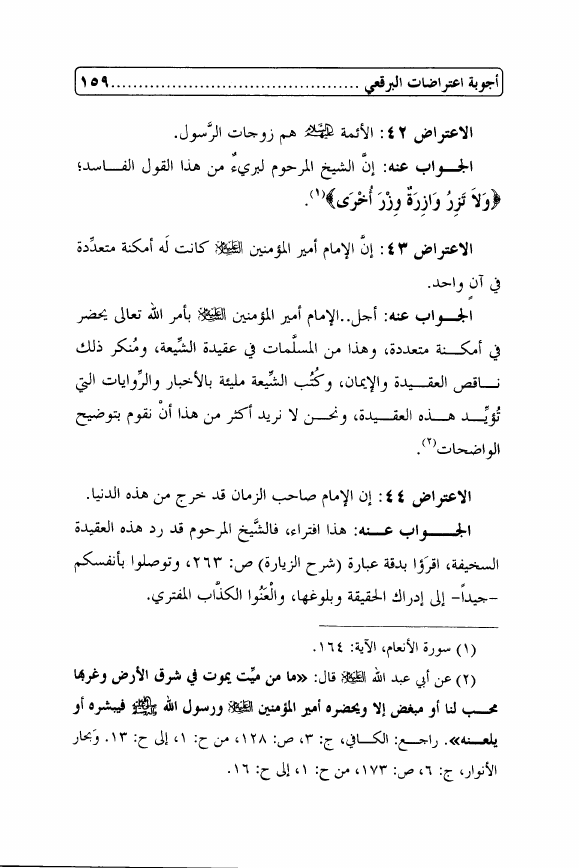 أجوبة اعتراضات البرقعي ............................................. ١٥٩
الاعتراض ٤٢: الأئمة عليهم السلام هم زوجات الرَّسول.
الجـواب عنه: إنَّ الشيخ المرحوم لبريءٌ من هذا القول الفـاسد؛
﴿وَلاَ تَزِرُ وَازِرَةٌ وِزْرَ أُخْرَى﴾(١).
الاعتراض ٤٣: إنَّ الإمام أمير المؤمنين عليه السلام كانت لَه أمكنة متعدِّدة
في آنٍ واحد.
الجـواب عنه: أجل..الإمام أمير المؤمنين عليه السلام بأمر الله تعالى يحضر
في أمكـنة متعددة، وهذا من المسلَّمات في عقيدة الشِّيعة، ومُنكر ذلك
نـاقص العقـيدة والإيمان، وكُتُب الشِّيعة مليئة بالأخبار والرِّوايات التي
تُؤيِّـد هـذه العقـيدة، ونحـن لا نريد أكثر من هذا أنْ نقوم بتوضيح
الواضحات(٢).
الاعتراض ٤٤: إن الإمام صاحب الزمان قد خرج من هذه الدنيا.
الجـواب عـنه: هذا افتراء، فالشَّيخ المرحوم قد رد هذه العقيدة
السخيفة، اقرَؤا بدقة عبارة (شرح الزيارة) ص: ٢٦٣، وتوصلوا بأنفسكم
-جيداً- إلى إدراك الحقيقة وبلوغها، والْعَنُوا الكذَّاب المفتري.
(١) سورة الأنعام، الآية: ١٦٤.
(٢) عن أبي عبد الله عليه السلام قال: «ما من ميِّت يموت في شرق الأرض وغربها
محـب لنا أو مبغض إلا ويحضره أمير المؤمنين عليه السلام ورسول الله صلى الله عليه وآله فيبشره أو
يلعـنه». راجـع: الكـافي، ج: ٣، ص: ١٢٨، من ح: ١، إلى ح: ١٣. وَبحار
الأنوار، ج: ٦، ص: ١٧٣، من ح: ١، إلى ح: ١٦.